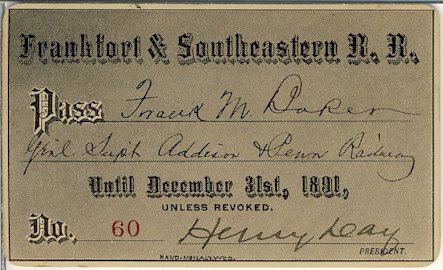 Frankfort & Southeastern R. R.
Pass Frank M. Baker
Genl Supt Addison & Penn Railway
Until December 31st, 1891,
UNLESS REVOKED.
No. 60 Henry Day
PRESIDENT.
RAND-McNALLY-CO.